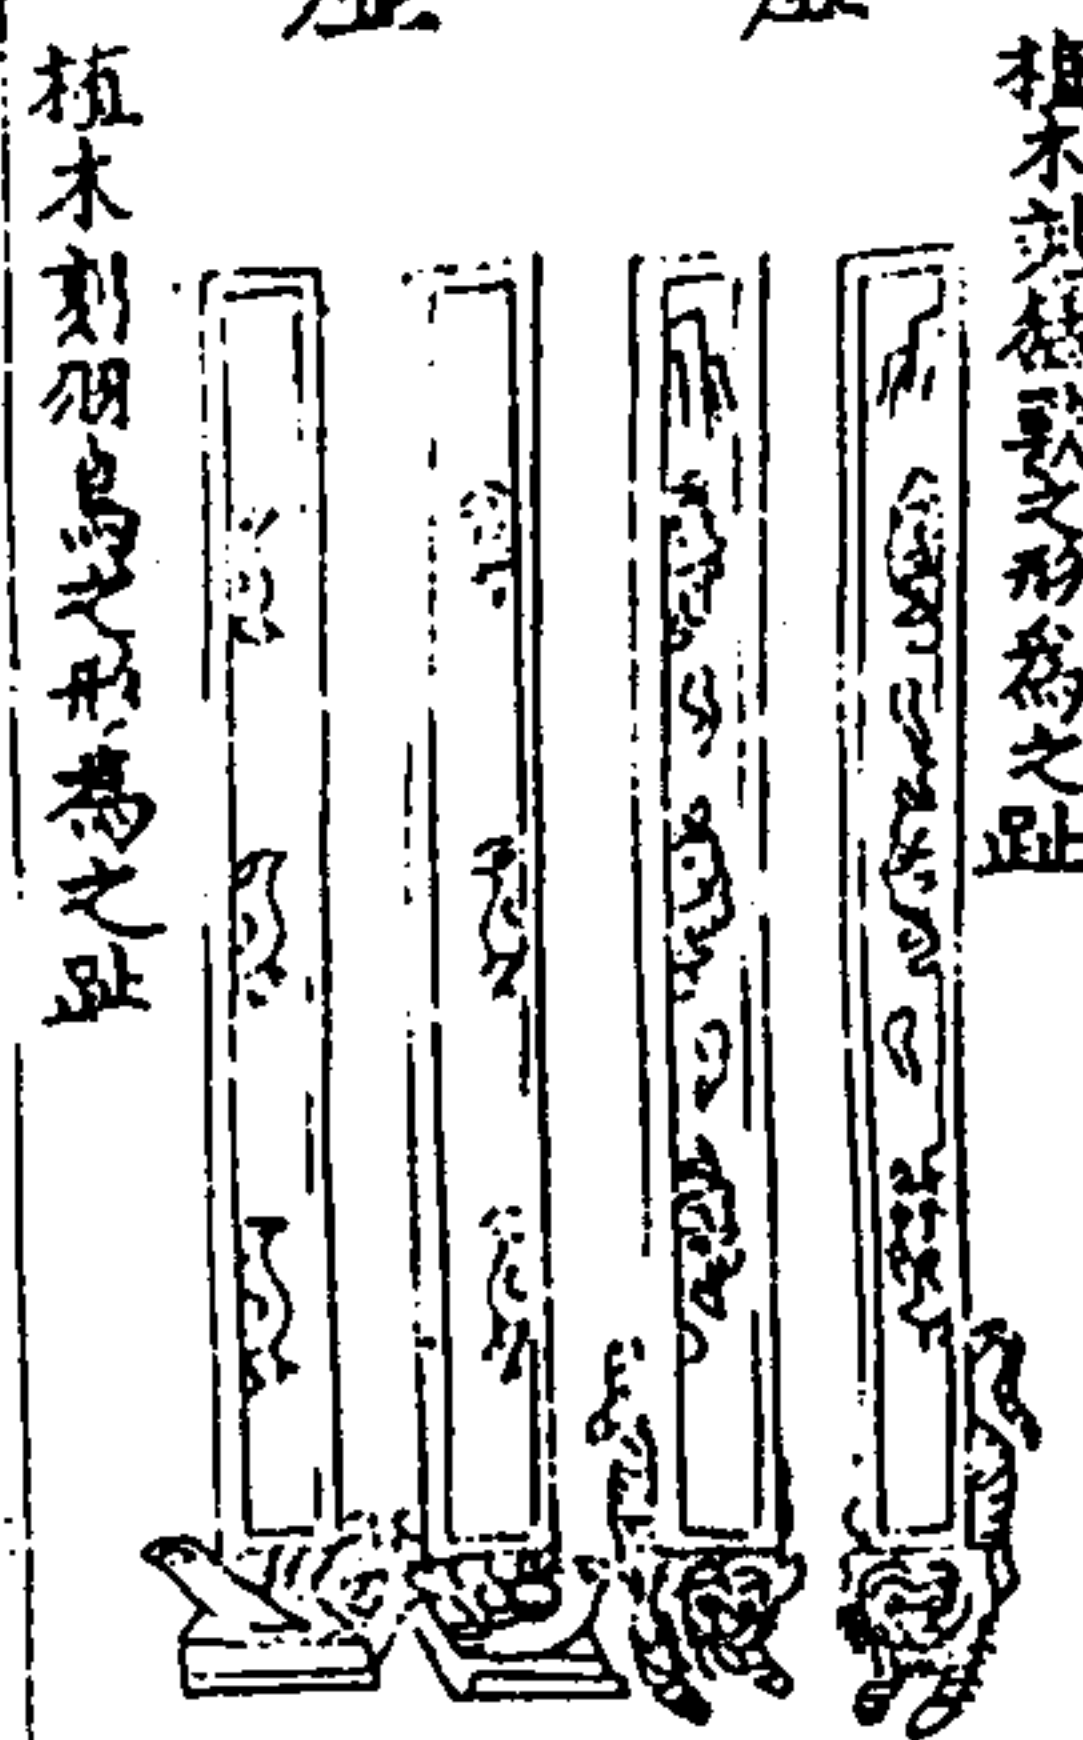 植木刻獸之形為之趾
植木刻羽鳥之形為之趾